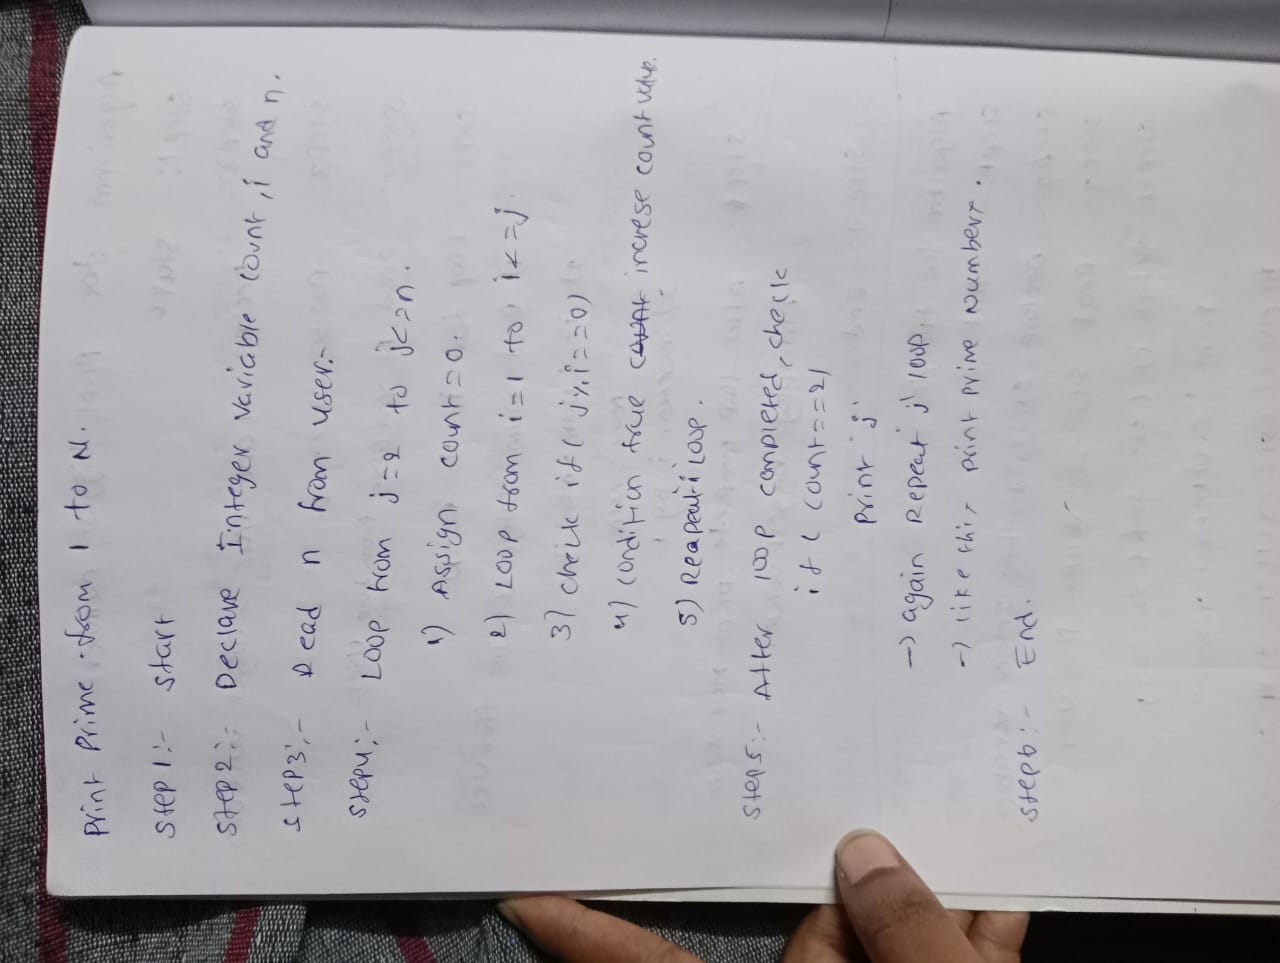 Print Prime from 1 to N.
Step 1:- Start
Step 2:- Declare Integer Variable count, i and n.
Step3:- Read n from user.
Step4:- Loop from j=2 to j<=n.
1) Assign count=0.
2) Loop from i=1 to i<=j.
3) check if (j%i==0)
4) condition true increse count value.
5) Reapeat i Loop.
Step5:- After loop completed, check
if (count==2)
Print 'j'
-> again Repeat 'j' loop.
-> like this print prime numbers.
Step6:- End.